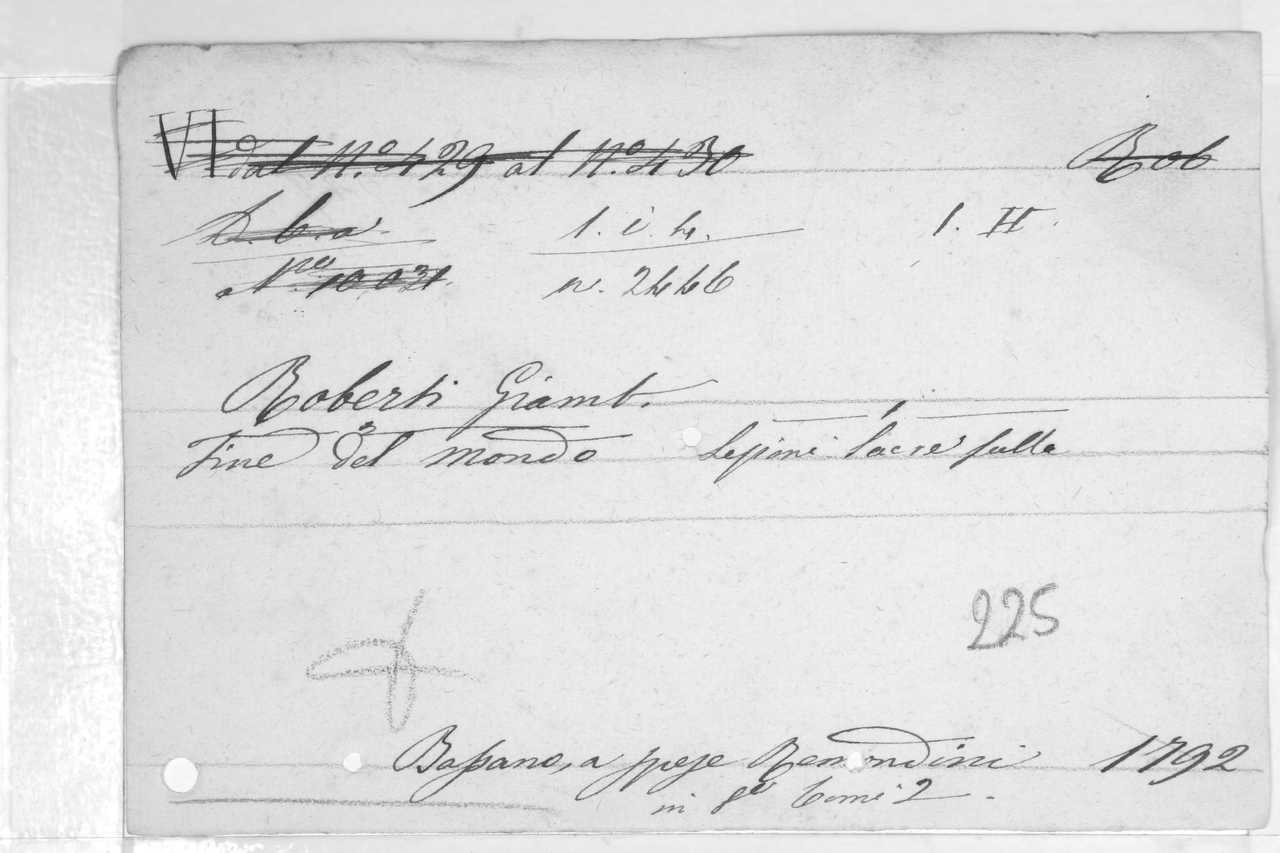 VI dal N.º 429 al N.º 430 Rob
D. b. a. 1. i. 4. 1. H.
N.ro 10,031. n. 2446
Roberti Giamb.
Fine del mondo Lezioni sacre sulla
225
Bassano, a spese Remondini 1792
in 8º tomi 2.